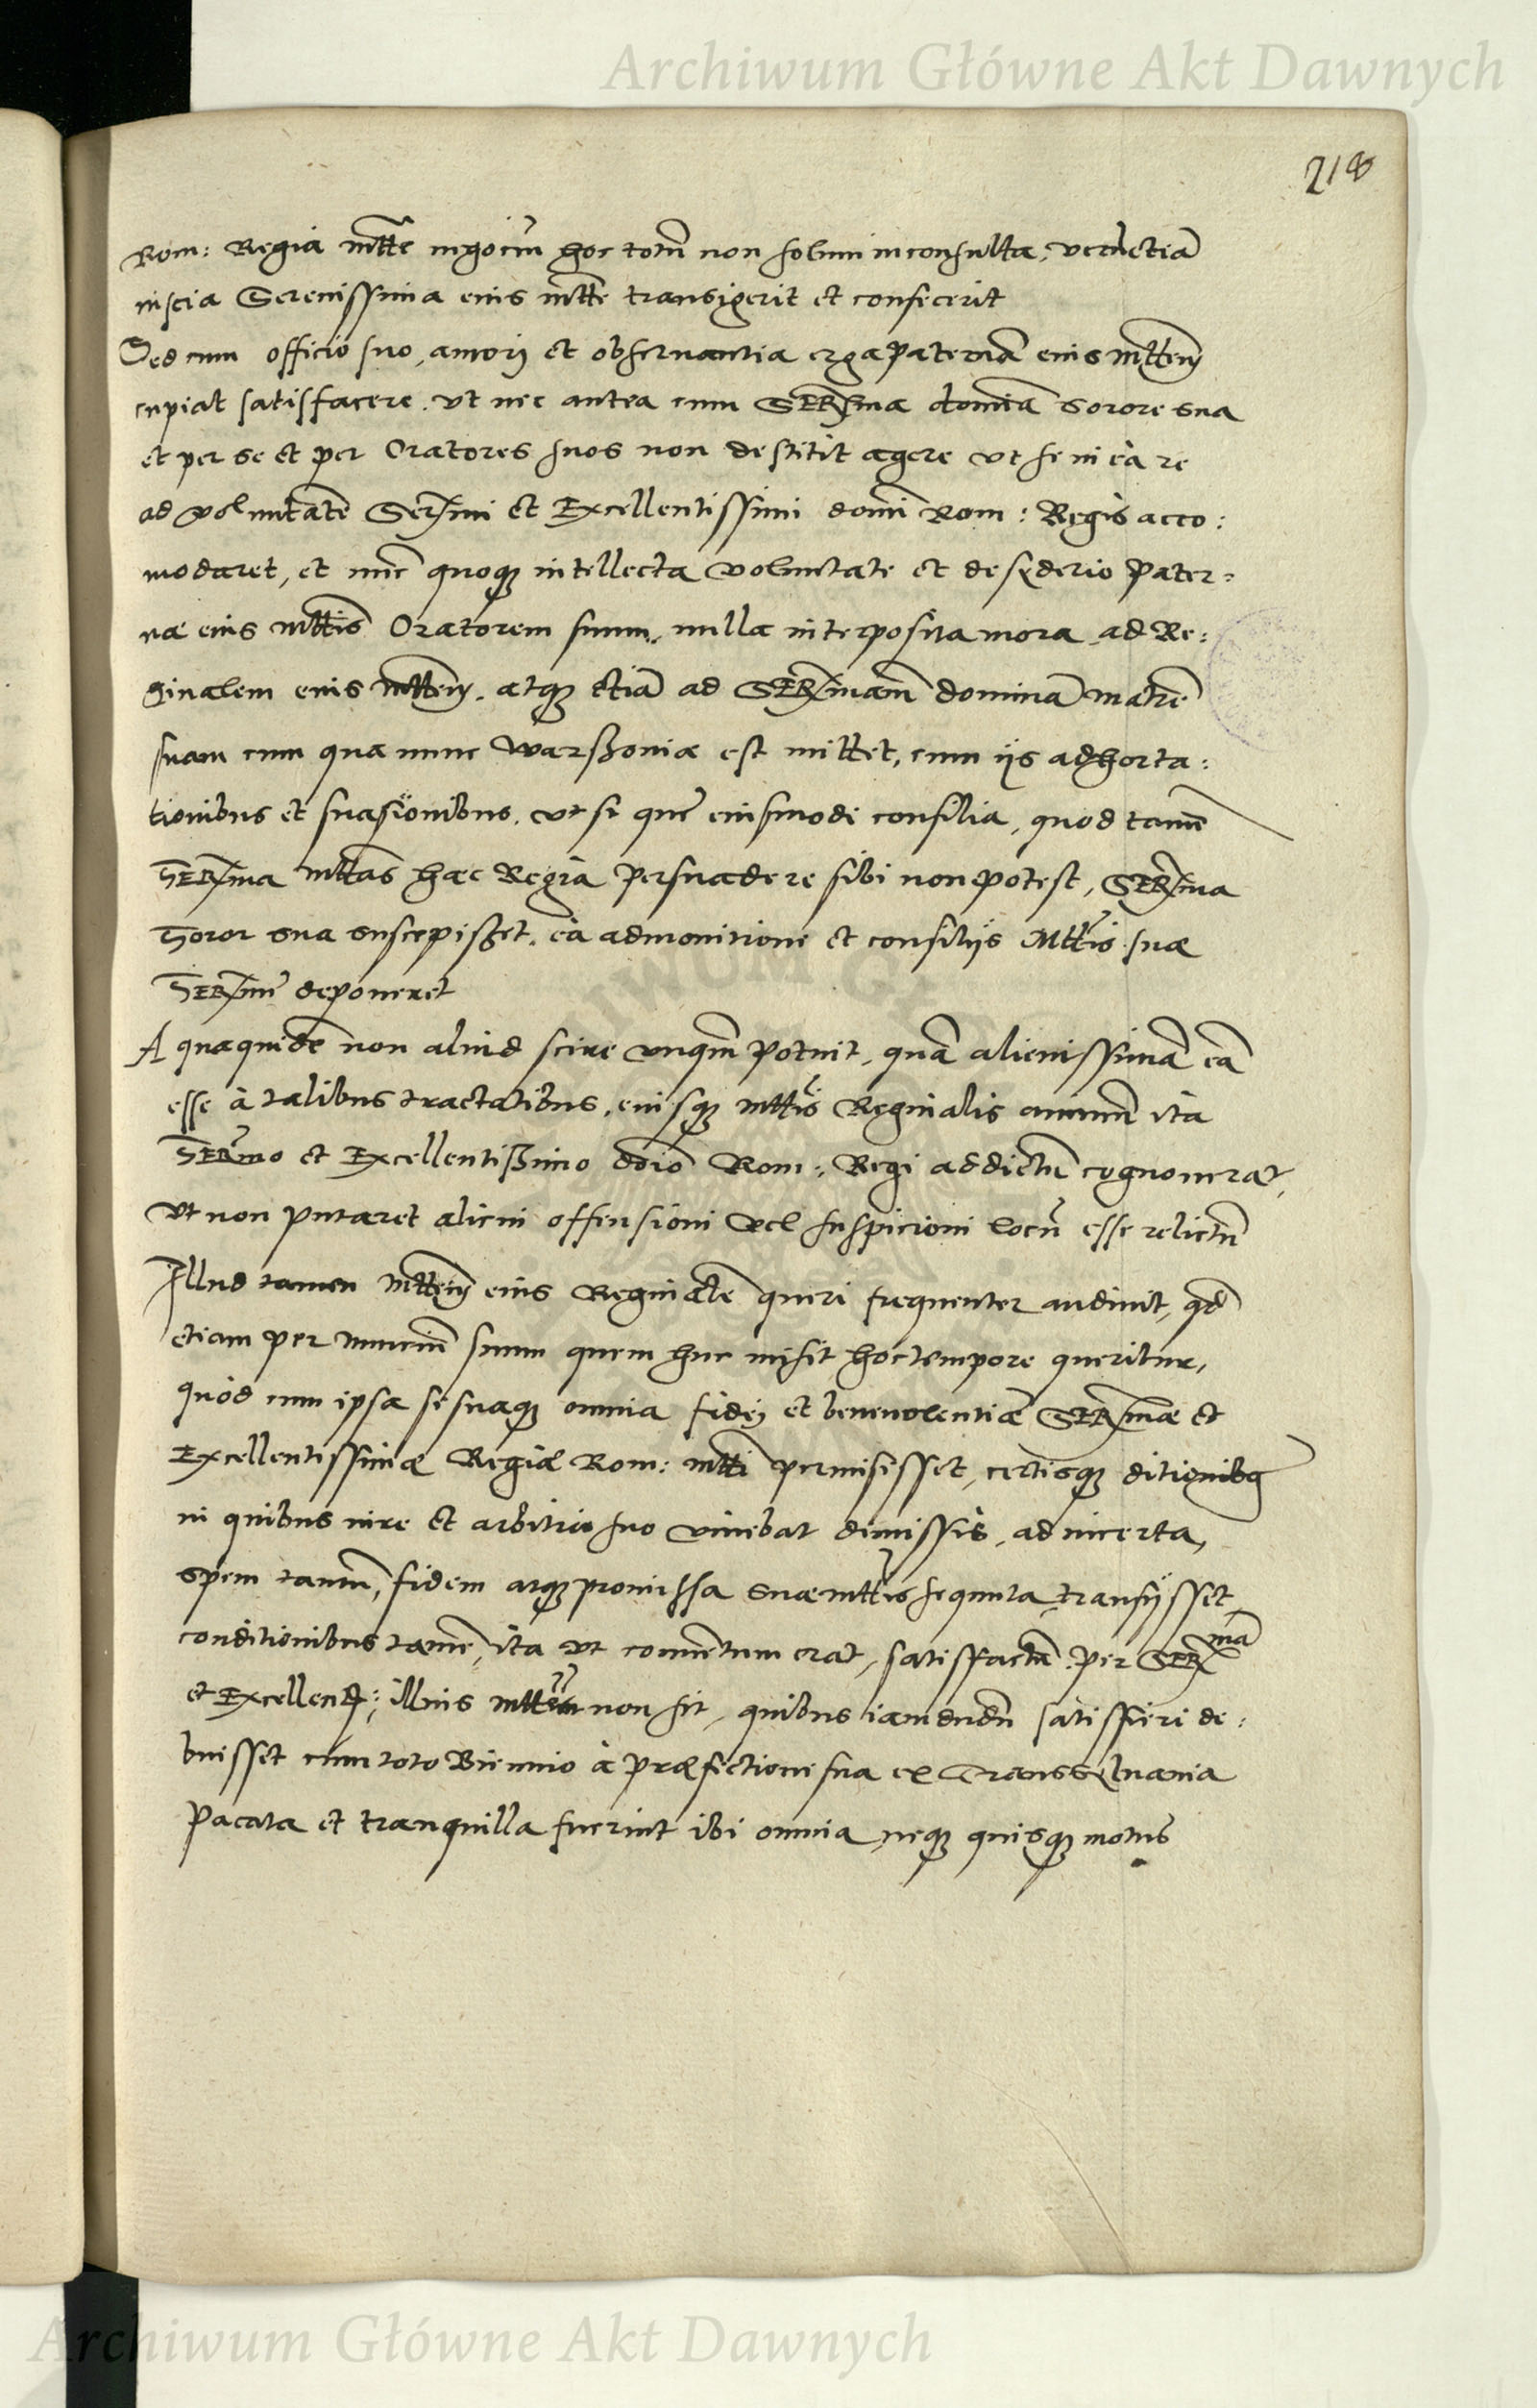 Archiwum Główne Akt Dawnych
218
Rom: Regia Mtte negociũ hoc totũ non solum inconsulta, verũetiã
inscia Serenissima eius Mtte transigerit et confecerit
Sed cum officio suo, amori et obseruantia erga paternã eius Mttem
cupiat satisfacere. Vt nec antea cum SERma domĩa sorore sua
et per se et per Oratores suos non destitit agere vt se in ea re
ad voluntatẽ Serꝫmi et Excellentissimi domĩ Rom: Regis acco:
modaret, et nũc quoqꝫ intellecta voluntate et desyderio Pater:
næ eius Mttis Oratorem suum, nulla interposita mora, ad Re:
ginalem eius Mttem, atqꝫ etiã ad SERmam dominã matrẽ
suam cum qua nunc Warßouiæ est mittet, cum ijs adhorta:
tionibus et suasionibus, vt si que eiusmodi consilia, quod tamẽ
SERma Mttas hæc Regia persuadere sibi non potest, SERma
Soror sua suscepißet, ea admonitione et consilijs Mttis suæ
SERme deponeret
A qua quidẽ non aliud scire vnqm̃ potuit, quã alienissimã eã
esse à talibus tractatibus, eiusqꝫ Mttis Reginalis animũ ita
SERmo et Excellentißimo dõio Rom: Regi addictũ cognouerat,
Vt non putaret alicui offensioni vel suspicioni locũ esse relictũ
Illud tamen Mttem eius Reginalẽ queri frequenter audiuit, qd̃
etiam per nunciũ suum quem huc misit hoc tempore queritur,
quòd cum ipsa se suaqꝫ omnia fidei et beneuolentiæ SERmæ et
Excellentissimæ Regiæ Rom: Mtti permisisset, certisqꝫ ditionibꝫ
in quibus iure et arbitrio suo viuebat dimissis, ad incerta,
spem tantũ, fidem atqꝫ promissa suæ Mttis sequuta transijsset
conditionibus tamẽ, ita vt conuentum erat, satisfactũ per SERmã
et Excellent: illius Mttem non sit, quibus iamdudũ satisfieri de:
buisset cum toto Biennio à præfectione sua ex Transsyluania
Pacata et tranquilla fuerint ibi omnia, neqꝫ quisqꝫ motus
Archiwum Główne Akt Dawnych